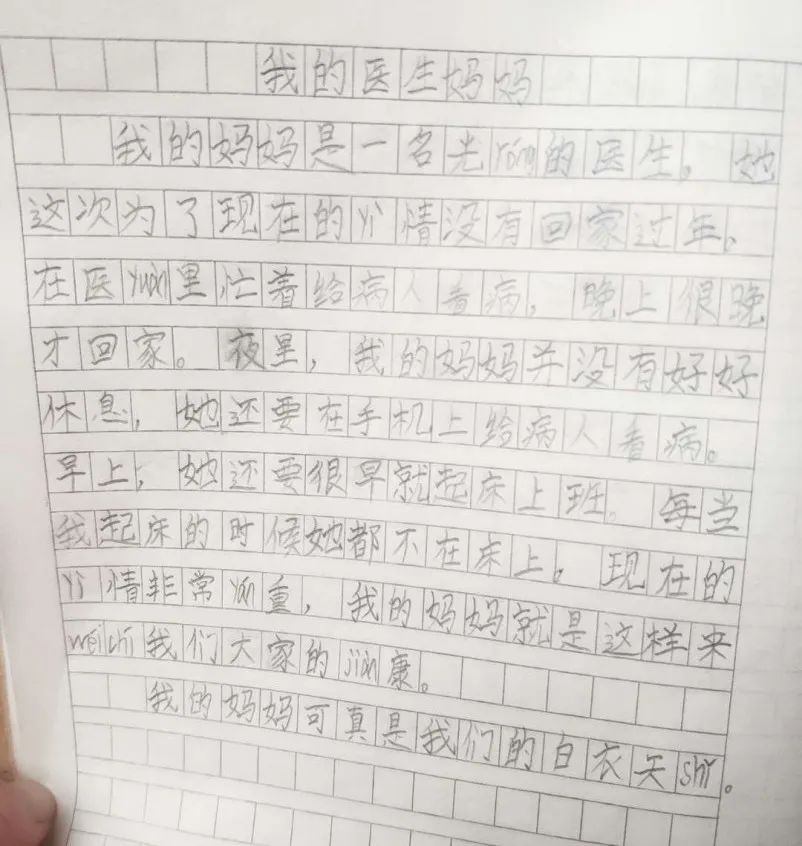 我的医生妈妈
我的妈妈是一名光róng的医生。她
这次为了现在的yì情没有回家过年,
在医yuàn里忙着给病人看病,晚上很晚
才回家。夜里,我的妈妈并没有好好
休息,她还要在手机上给病人看病。
早上,她还要很早就起床上班。每当
我起床的时候她都不在床上。现在的
yì情非常yán重,我的妈妈就是这样来
wéichí我们大家的jiàn康。
我的妈妈可真是我们的白衣天shǐ。